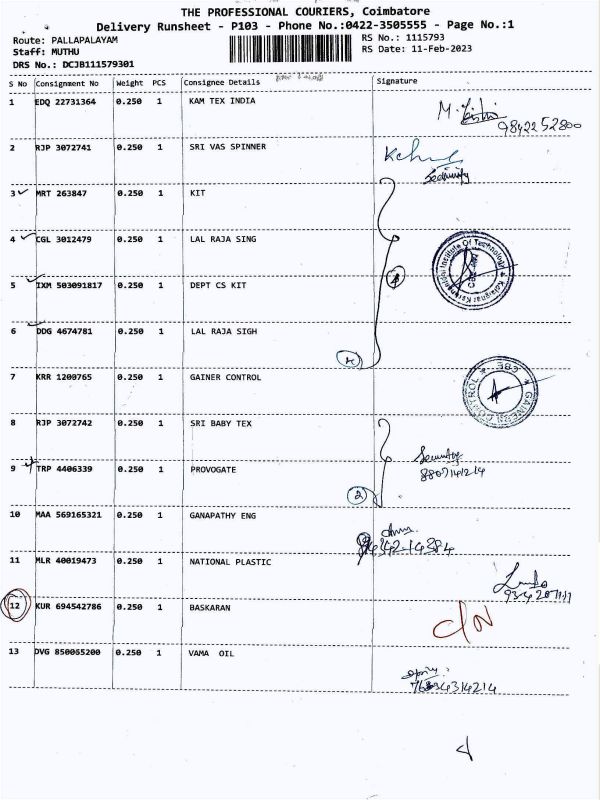 THE PROFESSIONAL COURIERS, Coimbatore
Delivery Runsheet - P103 - Phone No.:0422-3505555 - Page No.:1
Route: PALLAPALAYAM
RS No.: 1115793
Staff: MUTHU
RS Date: 11-Feb-2023
DRS No.: DCJB111579301
S No Consignment No Weight PCS Consignee Details Signature
1 EDQ 22731364 0.250 1 KAM TEX INDIA
9842252800
2 RJP 3072741 0.250 1 SRI VAS SPINNER
Security
3 MRT 263847 0.250 1 KIT
4 CGL 3012479 0.250 1 LAL RAJA SING
4
5 IXM 503091817 0.250 1 DEPT CS KIT
6 DDG 4674781 0.250 1 LAL RAJA SIGH
7 KRR 1200765 0.250 1 GAINER CONTROL
383
8 RJP 3072742 0.250 1 SRI BABY TEX
Security
9 TRP 4406339 0.250 1 PROVOGATE
2
10 MAA 569165321 0.250 1 GANAPATHY ENG
11 MLR 40019473 0.250 1 NATIONAL PLASTIC
12 KUR 694542786 0.250 1 BASKARAN
13 DVG 850065200 0.250 1 VAMA OIL